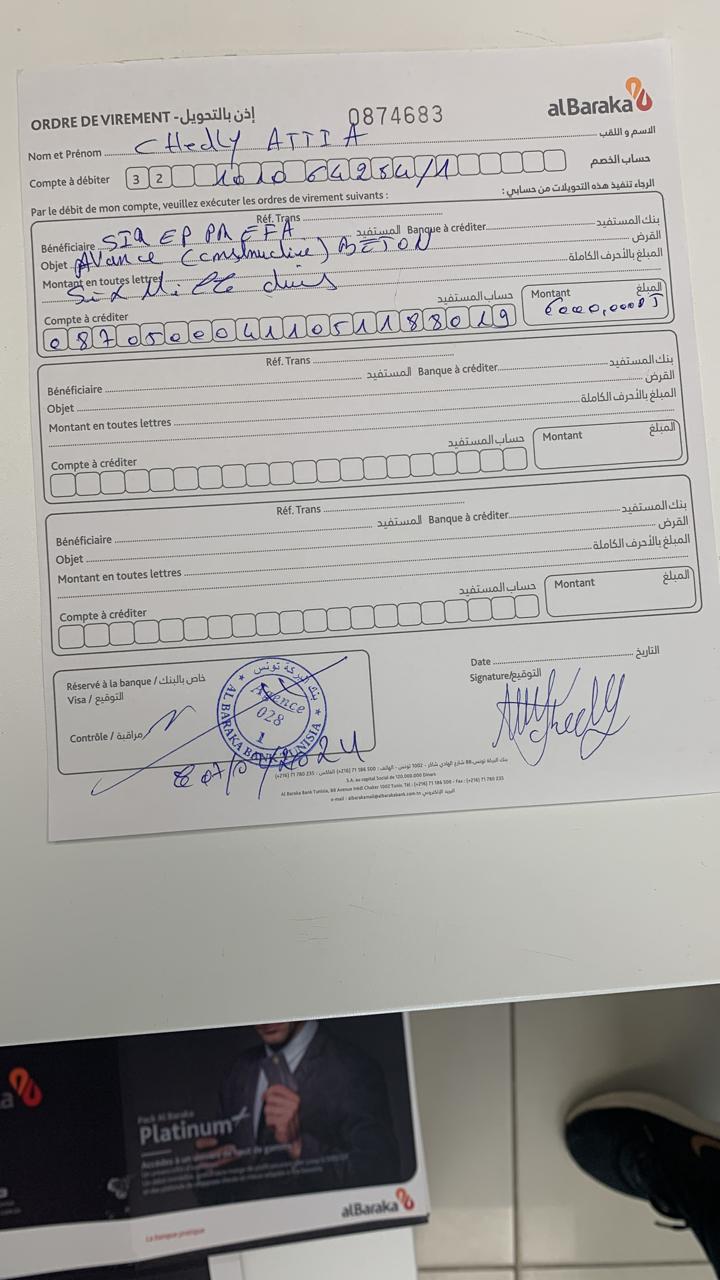 ORDRE DE VIREMENT - إذن بالتحويل
0874683
alBaraka
Nom et Prénom CHedly ATTIA الاسم و اللقب
Compte à débiter 3 2 1010 64254/1 حساب الخصم
Par le débit de mon compte, veuillez exécuter les ordres de virement suivants : الرجاء تنفيذ هذه التحويلات من حسابي :
Réf. Trans
Bénéficiaire المستفيد Banque à créditer بنك المستفيد
Objet Avance (constructive) BETON القرض
Montant en toutes lettres Six Mille المبلغ بالأحرف الكاملة
Compte à créditer حساب المستفيد Montant المبلغ
08705000411051188019
Réf. Trans
Bénéficiaire المستفيد Banque à créditer بنك المستفيد
Objet القرض
Montant en toutes lettres المبلغ بالأحرف الكاملة
Compte à créditer حساب المستفيد Montant المبلغ
Réf. Trans
Bénéficiaire المستفيد Banque à créditer بنك المستفيد
Objet القرض
Montant en toutes lettres المبلغ بالأحرف الكاملة
Compte à créditer حساب المستفيد Montant المبلغ
Réservé à la banque / خاص بالبنك
Visa / التوقيع
Contrôle / مراقبة
بنك البركة تونس
AL BARAKA BANK TUNISIA
Agence
028
1
Date التاريخ
Signature/التوقيع
بنك البركة تونس، 88 شارع الهادي شاكر - 1002 تونس - الهاتف : 500 186 71 (216+) الفاكس : 235 780 71 (216+)
S.A. au capital Social de 120.000.000 Dinars
Al Baraka Bank Tunisia, 88 Avenue Hédi Chaker 1002 Tunis. Tél : (+216) 71 186 500 - Fax : (+216) 71 780 235
e-mail : albarakamail@albarakabank.com.tn البريد الإلكتروني
Pack Al Baraka
Platinum
alBaraka
La banque pratique